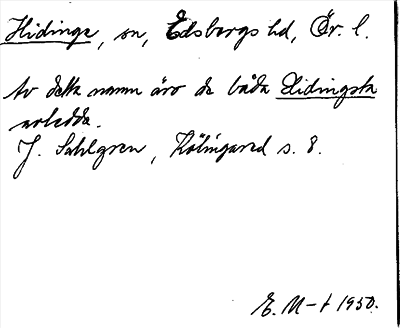 Hidinge, sn, Edsbergs hd, Ör. l.
Av detta namn äro de båda Hidingsta
avledda.
J. Sahlgren, Kölingared s. 8.
E. M-t 1950.